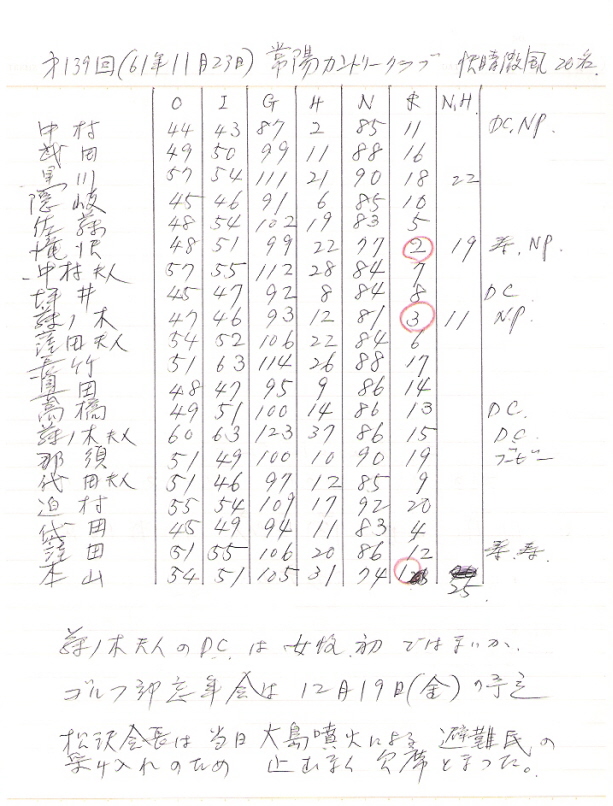 第139回(61年11月23日) 常陽カントリークラブ 快晴微風 20名
O I G H N R N.H.
中村 44 43 87 2 85 11 DC, NP.
田 49 50 99 11 88 16
黒川 57 54 111 21 90 18 22
隠岐 45 46 91 6 85 10
佐藤 48 54 102 19 83 5
滝沢 48 51 99 22 77 2 19 寿, NP.
中村夫人 57 55 112 28 84 7
坪井 45 47 92 8 84 8 DC
蘓ノ木 47 46 93 12 81 3 11 NP.
窪田夫人 54 52 106 22 84 6
長竹 51 63 114 26 88 17
冨田 48 47 95 9 86 14
高橋 49 51 100 14 86 13 DC.
蘓ノ木夫人 60 63 123 37 86 15 DC.
那須 51 49 100 10 90 19 ブービー
代田夫人 51 46 97 12 85 9
迫村 55 54 109 17 92 20
代田 45 49 94 11 83 4
窪田 51 55 106 20 86 12 寿.寿.
本山 54 51 105 31 74 1 25.
蘓ノ木夫人のD.C. は 女性 初 ではないか.
ゴルフ部忘年会は 12月19日(金) の予定
松沢会長は 当日 大島噴火による 避難民の
受け入れのため 止むなく 欠席となった。